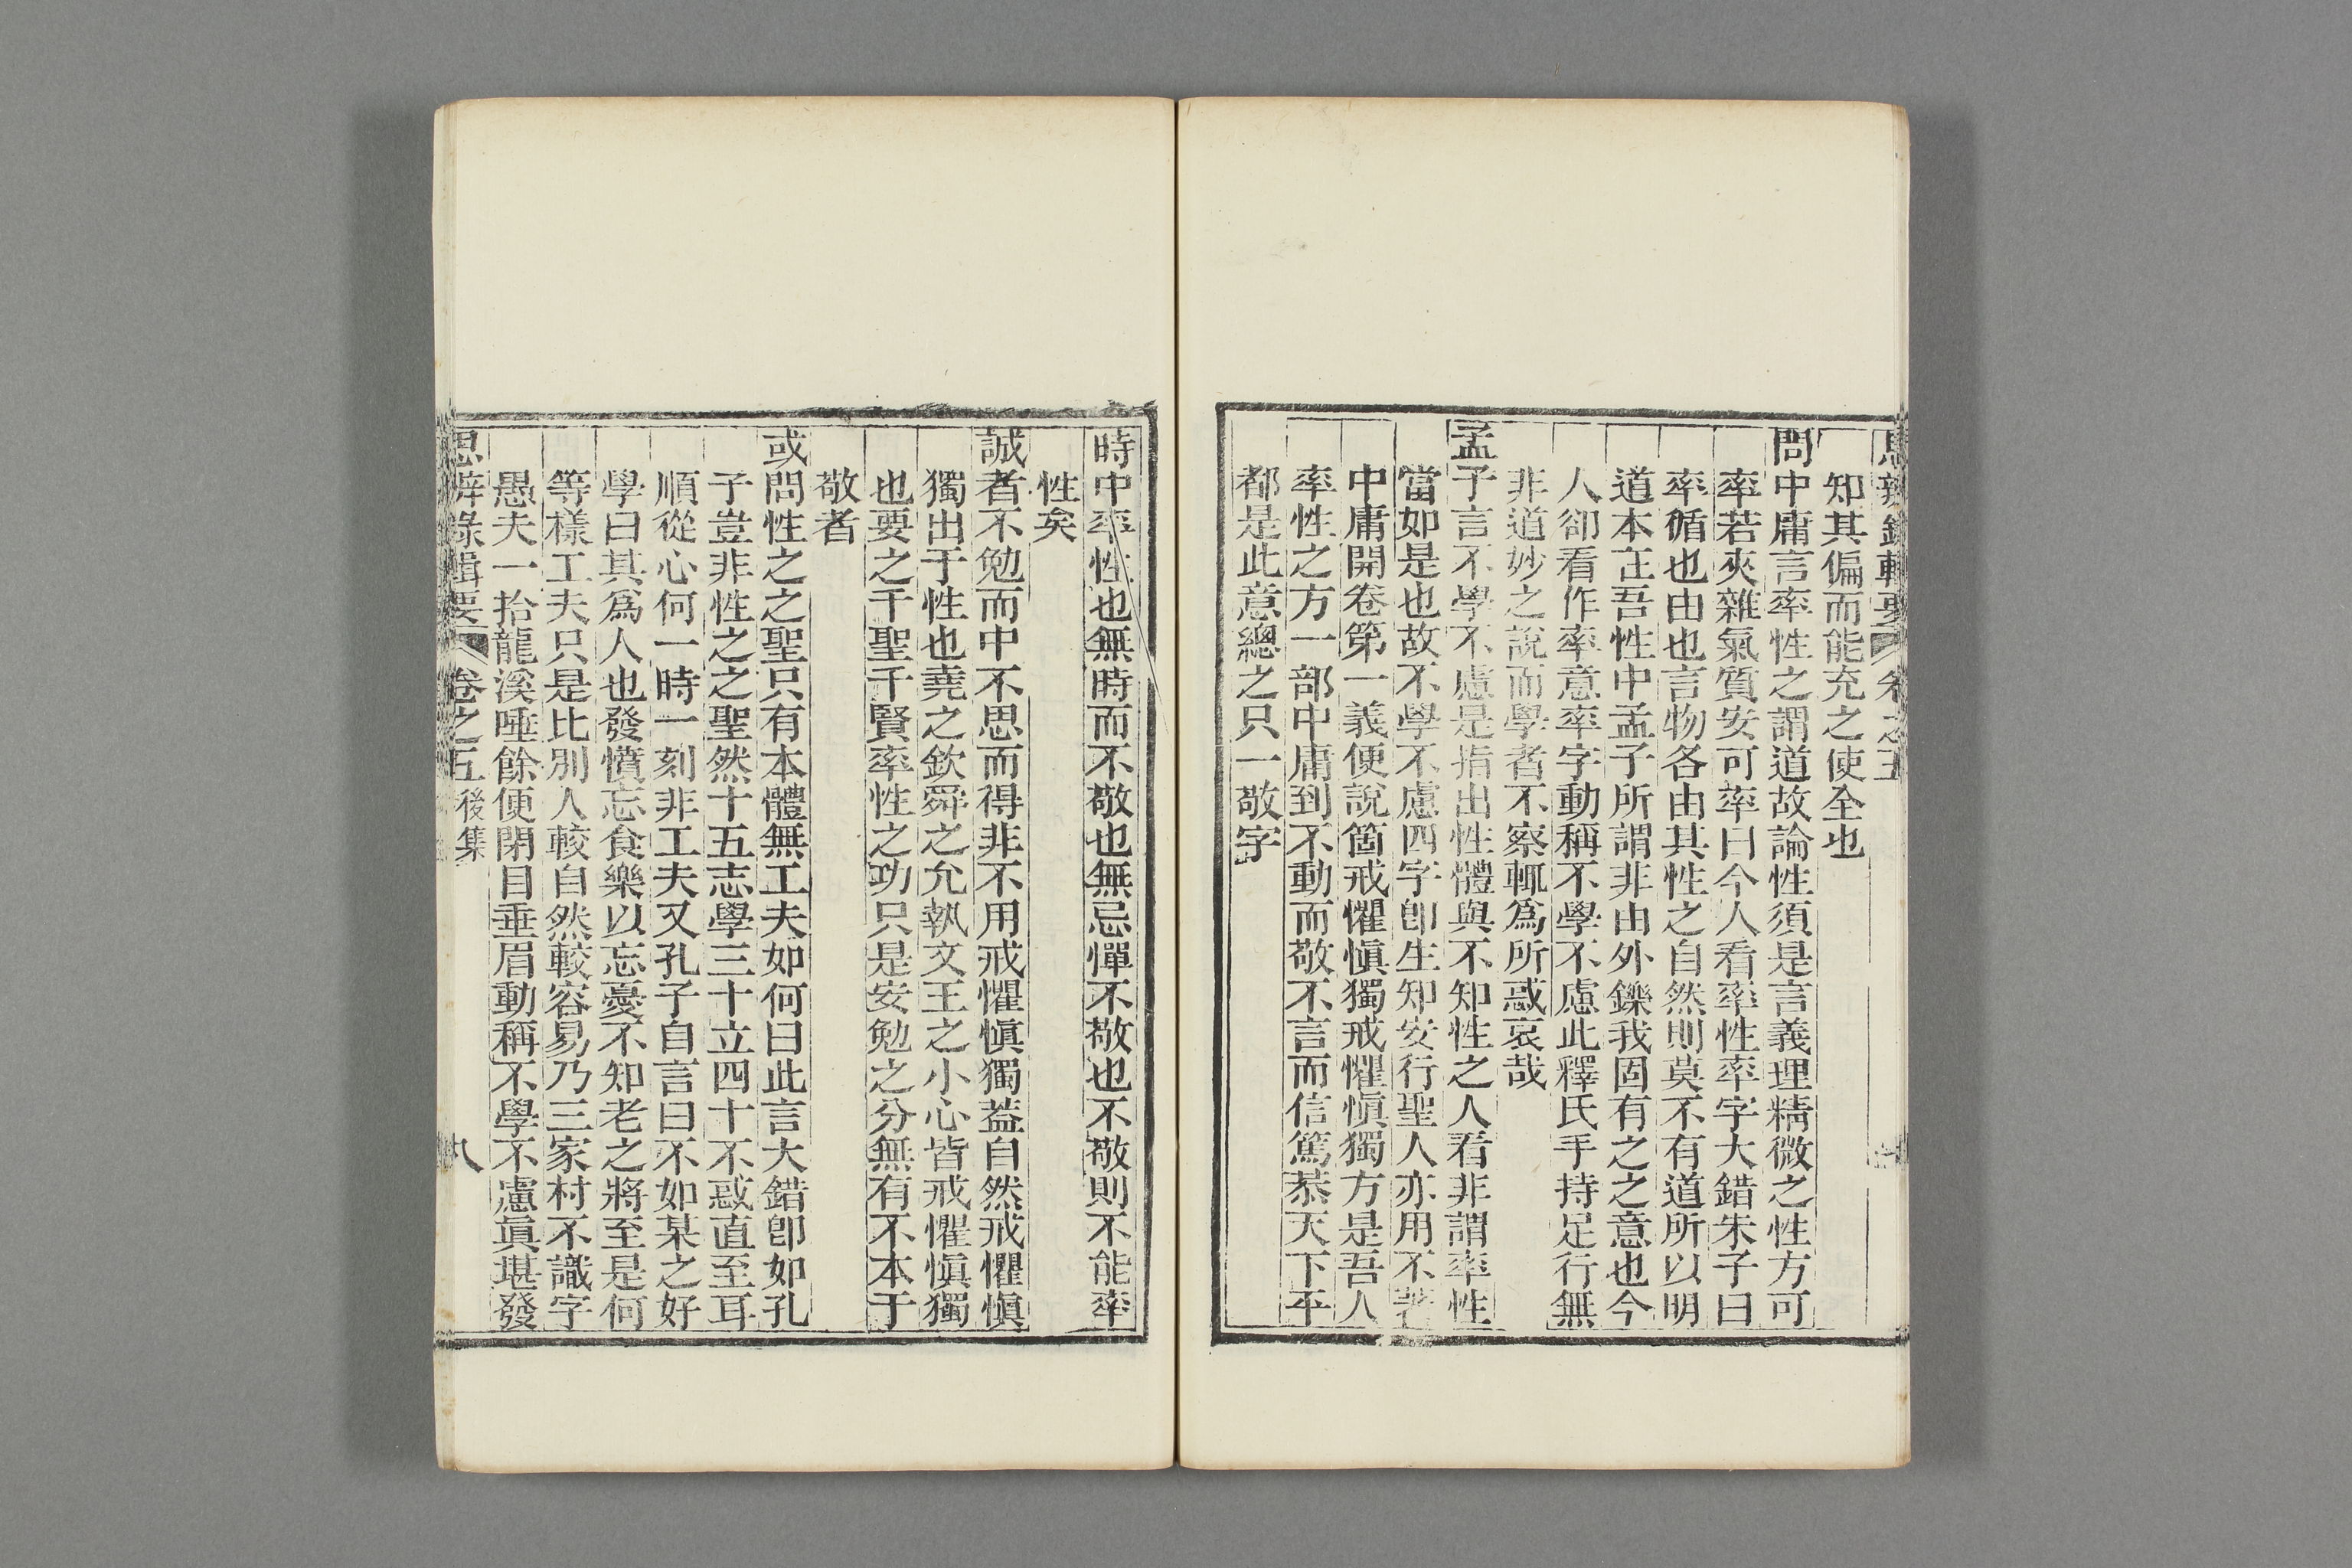 思辨錄輯要 卷之五
知其偏而能充之使全也
問中庸言率性之謂道故論性須是言義理精微之性方可
率若夾雜氣質安可率曰今人看率性率字大錯朱子曰
率循也由也言物各由其性之自然則莫不有道所以明
道本在吾性中孟子所謂非由外鑠我固有之之意也今
人卻看作率意率字動稱不學不慮此釋氏手持足行無
非道妙之說而學者不察輒為所惑哀哉
孟子言不學不慮是指出性體與不知性之人看非謂率性
當如是也故不學不慮四字卽生知安行聖人亦用不著
中庸開卷第一義便說箇戒懼愼獨戒懼愼獨方是吾人
率性之方一部中庸到不動而敬不言而信篤恭天下平
都是此意總之只一敬字
時中率性也無時而不敬也無忌憚不敬也不敬則不能率
性矣
誠者不勉而中不思而得非不用戒懼愼獨蓋自然戒懼愼
獨出于性也堯之欽舜之允執文王之小心皆戒懼愼獨
也要之千聖千賢率性之功只是安勉之分無有不本于
敬者
或問性之之聖只有本體無工夫如何曰此言大錯卽如孔
子豈非性之之聖然十五志學三十立四十不惑直至耳
順從心何一時一刻非工夫又孔子自言曰不如某之好
學曰其為人也發憤忘食樂以忘憂不知老之將至是何
等樣工夫只是比別人較自然較容易乃三家村不識字
愚夫一拾龍溪唾餘便閉目垂眉動稱不學不慮眞堪發
思辨錄輯要 卷之五 後集 八